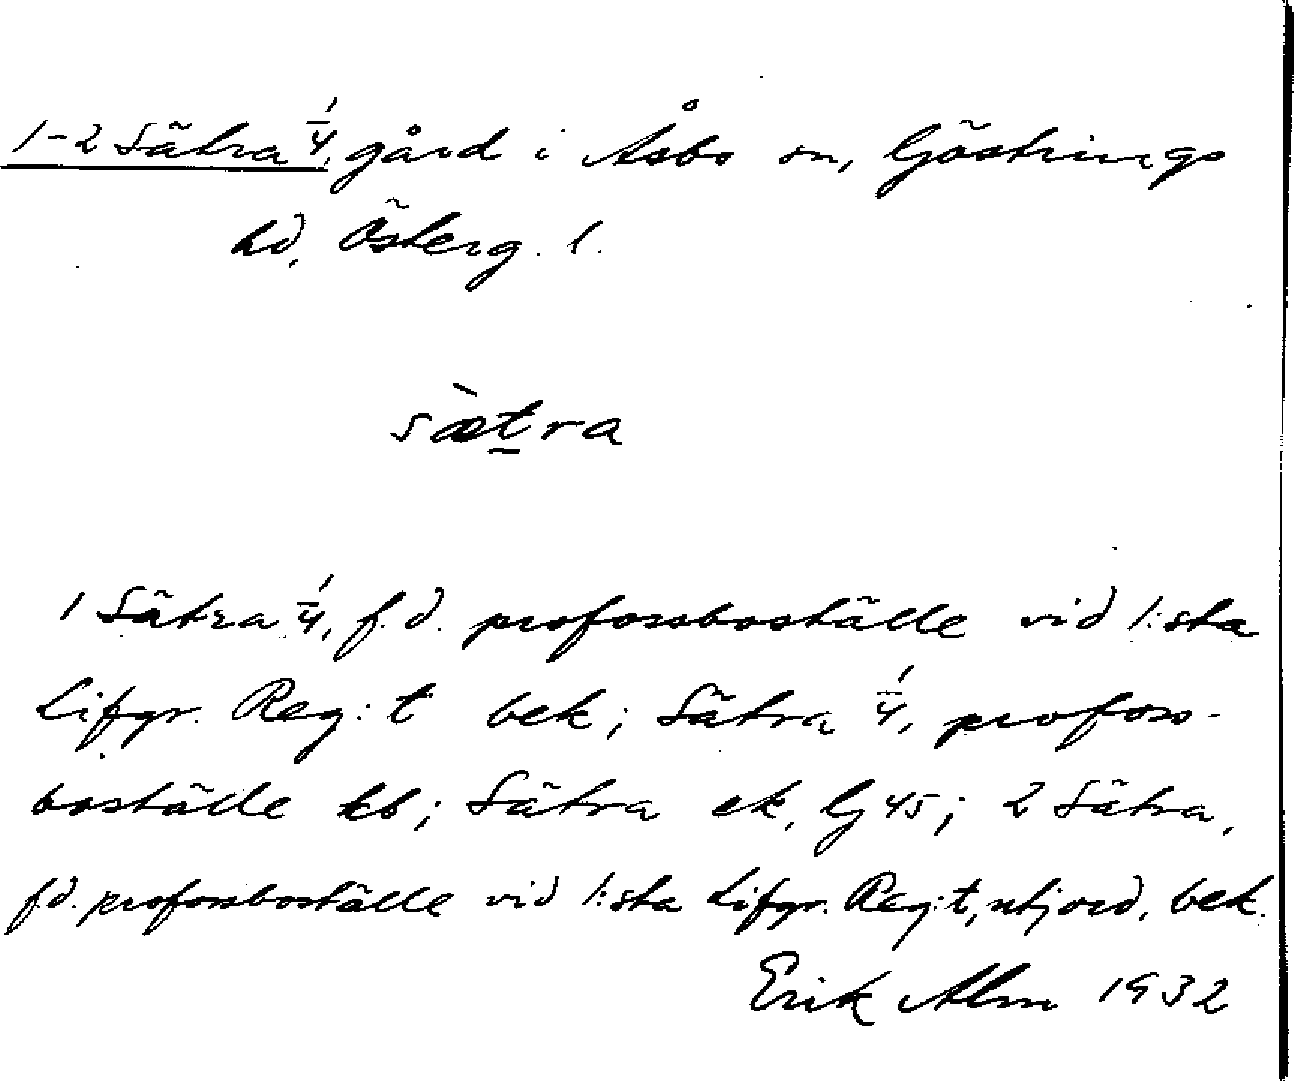 1-2 Sätra 1/4, gård i Åsbo sn, Göstrings
hd, Österg. l.
sæ̀t̠ra
1 Sätra 1/4, f. d. profossboställe vid 1:sta
Lifgr. Reg:t bek; Sätra 1/4, profoss-
boställe kb; Sätra ek, Gj 45; 2 Sätra,
f.d. profossboställe vid 1:sta Lifgr. Reg:t, utjord, bek.
Erik Alm 1932